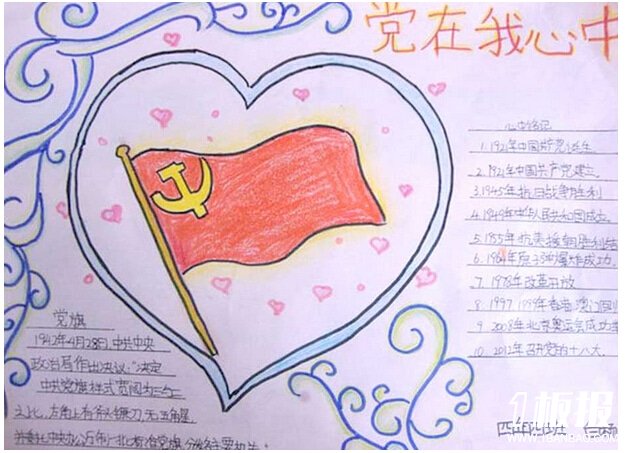 党在我心中
心中铭记
1. 1921年中国共产党诞生
2. 1921年中国共产党建立.
3. 1945年抗日战争胜利
4. 1949年中华人民共和国成立.
5. 1955年抗美援朝胜利结
6. 1964年原子弹爆炸成功.
7. 1978年改革开放
8. 1997 1999年香港 澳门回归
9. 2008年北京奥运会成功举
10. 2012年召开党的十八大.
党旗
1942年4月28日,中共中央
政治局作出决议:"决定
中共党旗样式宽阔为三与二
之比,左角上有斧头镰刀,无五角星
并委托中央办公厅制
四年级
1板报